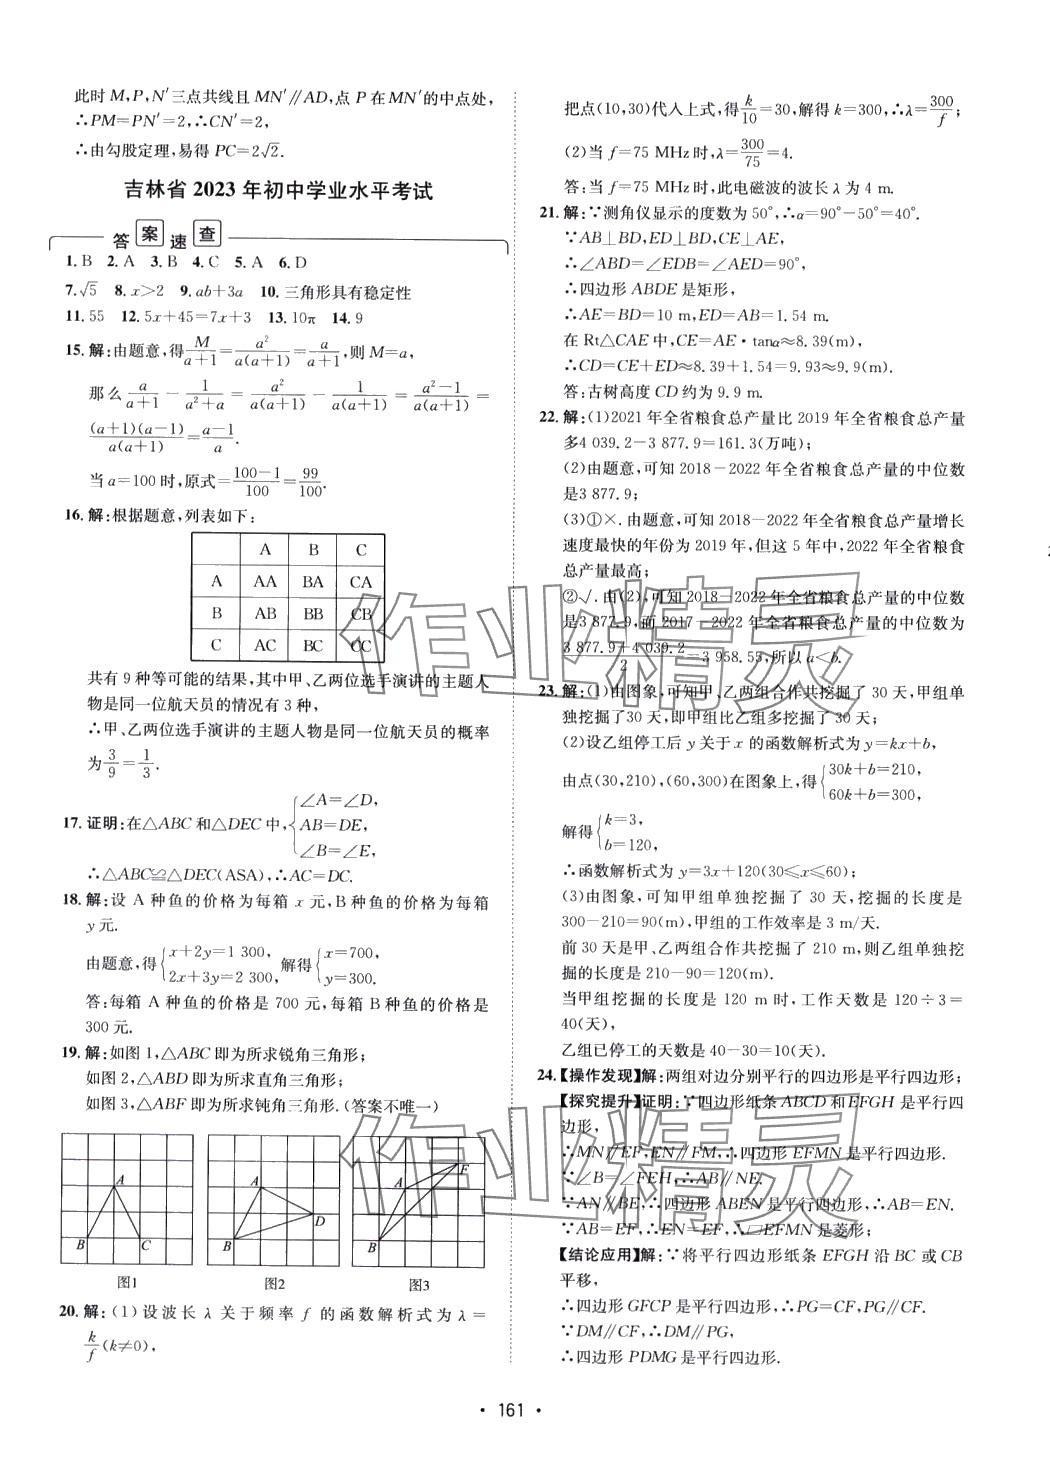 此时 M,P,N′三点共线且 MN′∥AD,点 P 在 MN′的中点处,
∴PM=PN′=2,∴CN′=2,
∴由勾股定理,易得 PC=2√2.
吉林省 2023 年初中学业水平考试
答案速查
1. B 2. A 3. B 4. C 5. A 6. D
7. √5 8. x>2 9. ab+3a 10. 三角形具有稳定性
11. 55 12. 5x+45=7x+3 13. 10π 14. 9
15. 解:由题意,得M/(a+1)=a²/(a(a+1))=a/(a+1),则 M=a,
那么 a/(a+1)-1/(a²+a)=a²/(a(a+1))-1/(a(a+1))=(a²-1)/(a(a+1))=
(a+1)(a-1)/(a(a+1))=(a-1)/a.
当 a=100 时,原式=(100-1)/100=99/100.
16. 解:根据题意,列表如下:
A B C
A AA BA CA
B AB BB CB
C AC BC CC
共有 9 种等可能的结果,其中甲、乙两位选手演讲的主题人
物是同一位航天员的情况有 3 种,
∴甲、乙两位选手演讲的主题人物是同一位航天员的概率
为3/9=1/3.
17. 证明:在△ABC 和△DEC 中,{∠A=∠D,
AB=DE,
∠B=∠E,
∴△ABC≌△DEC(ASA),∴AC=DC.
18. 解:设 A 种鱼的价格为每箱 x 元,B 种鱼的价格为每箱
y 元.
由题意,得{x+2y=1 300, 2x+3y=2 300, 解得{x=700, y=300.
答:每箱 A 种鱼的价格是 700 元,每箱 B 种鱼的价格是
300 元.
19. 解:如图 1,△ABC 即为所求锐角三角形;
如图 2,△ABD 即为所求直角三角形;
如图 3,△ABF 即为所求钝角三角形.(答案不唯一)
A B C
图1
A B D
图2
A B F
图3
20. 解:(1)设波长 λ 关于频率 f 的函数解析式为 λ=
k/f(k≠0),
把点(10,30)代入上式,得k/10=30,解得 k=300,∴λ=300/f;
(2)当 f=75 MHz 时,λ=300/75=4.
答:当 f=75 MHz 时,此电磁波的波长 λ 为 4 m.
21. 解:∵测角仪显示的度数为 50°,∴α=90°-50°=40°.
∵AB⊥BD,ED⊥BD,CE⊥AE,
∴∠ABD=∠EDB=∠AED=90°,
∴四边形 ABDE 是矩形,
∴AE=BD=10 m,ED=AB=1.54 m.
在 Rt△CAE 中,CE=AE·tanα≈8.39(m),
∴CD=CE+ED≈8.39+1.54=9.93≈9.9(m).
答:古树高度 CD 约为 9.9 m.
22. 解:(1)2021 年全省粮食总产量比 2019 年全省粮食总产量
多4 039.2-3 877.9=161.3(万吨);
(2)由题意,可知 2018-2022 年全省粮食总产量的中位数
是3 877.9;
(3)①×. 由题意,可知 2018-2022 年全省粮食总产量增长
速度最快的年份为 2019 年,但这 5 年中,2022 年全省粮食
总产量最高;
②√. 由(2),可知 2018-2022 年全省粮食总产量的中位数
是3 877.9,而 2017-2022 年全省粮食总产量的中位数为
(3 877.9+4 039.2)/2=3 958.55,所以 a<b.
23. 解:(1)由图象,可知甲、乙两组合作共挖掘了 30 天,甲组单
独挖掘了30 天,即甲组比乙组多挖掘了 30 天;
(2)设乙组停工后 y 关于 x 的函数解析式为 y=kx+b,
由点(30,210),(60,300)在图象上,得{30k+b=210, 60k+b=300,
解得{k=3, b=120,
∴函数解析式为 y=3x+120(30≤x≤60);
(3)由图象,可知甲组单独挖掘了 30 天,挖掘的长度是
300-210=90(m),甲组的工作效率是 3 m/天.
前 30 天是甲、乙两组合作共挖掘了 210 m,则乙组单独挖
掘的长度是 210-90=120(m).
当甲组挖掘的长度是 120 m 时,工作天数是 120÷3=
40(天),
乙组已停工的天数是 40-30=10(天).
24.【操作发现】解:两组对边分别平行的四边形是平行四边形;
【探究提升】证明:∵四边形纸条 ABCD 和 EFGH 是平行四
边形,
∴MN∥EF,EN∥FM,∴四边形 EFMN 是平行四边形.
∵∠B=∠FEH,∴AB∥NE.
∵AN∥BE,∴四边形 ABEN 是平行四边形,∴AB=EN.
∵AB=EF,∴EN=EF,∴▱EFMN 是菱形;
【结论应用】解:∵将平行四边形纸条 EFGH 沿 BC 或 CB
平移,
∴四边形 GFCP 是平行四边形,∴PG=CF,PG∥CF.
∵DM∥CF,∴DM∥PG,
∴四边形 PDMG 是平行四边形.
作业精灵
作业精灵
· 161 ·